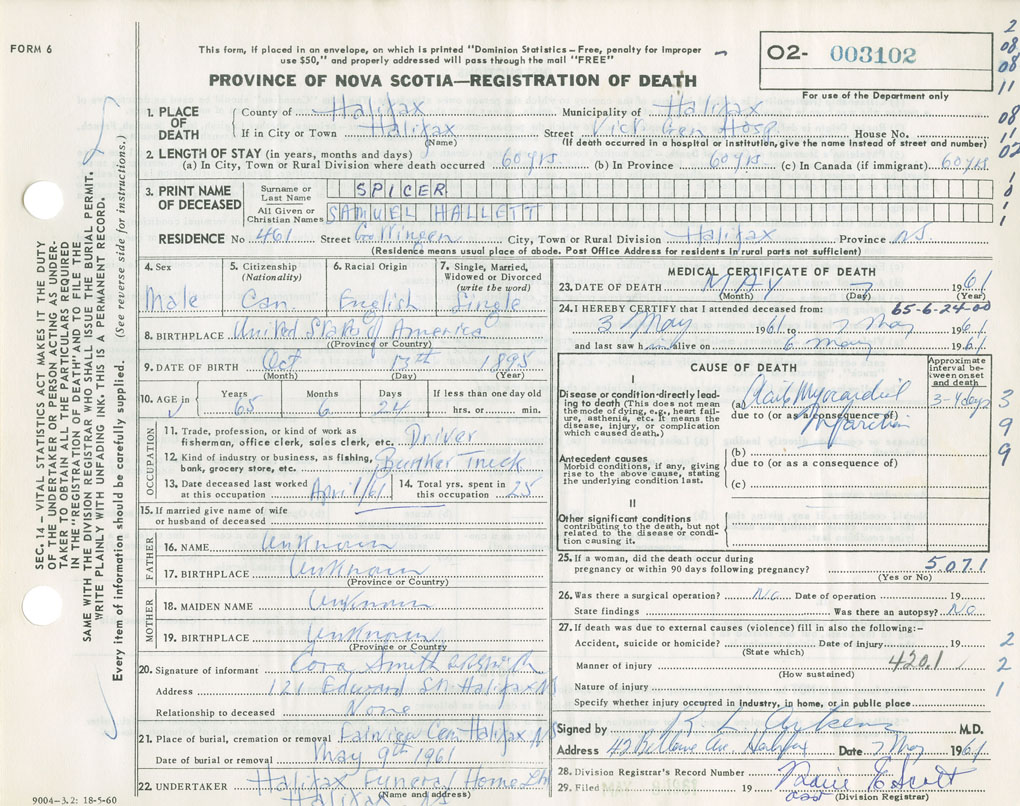 FORM 6
This form, if placed in an envelope, on which is printed "Dominion Statistics – Free, penalty for improper
use $50," and properly addressed will pass through the mail "FREE"
O2- 003102
For use of the Department only
PROVINCE OF NOVA SCOTIA—REGISTRATION OF DEATH
1. PLACE OF DEATH
County of Halifax Municipality of Halifax
If in City or Town Halifax Street Vict Gen Hosp House No.
(Name) (If death occurred in a hospital or institution, give the name instead of street and number)
2. LENGTH OF STAY (in years, months and days)
(a) In City, Town or Rural Division where death occurred 60 yrs (b) In Province 60 yrs (c) In Canada (if immigrant) 60 yrs
3. PRINT NAME OF DECEASED
Surname or Last Name SPICER
All Given or Christian Names SAMUEL HALLETT
RESIDENCE No 461 Street Gottingen City, Town or Rural Division Halifax Province NS
(Residence means usual place of abode. Post Office Address for residents in rural parts not sufficient)
4. Sex Male
5. Citizenship (Nationality) Can
6. Racial Origin English
7. Single, Married, Widowed or Divorced (write the word) Single
8. BIRTHPLACE United States of America
(Province or Country)
9. DATE OF BIRTH Oct 13th 1895
(Month) (Day) (Year)
10. AGE in Years 65 Months 6 Days 24 If less than one day old hrs. or min.
OCCUPATION
11. Trade, profession, or kind of work as
fisherman, office clerk, sales clerk, etc. Driver
12. Kind of industry or business, as fishing,
bank, grocery store, etc. Bunker Truck
13. Date deceased last worked
at this occupation April/61
14. Total yrs. spent in
this occupation 25
15. If married give name of wife
or husband of deceased
FATHER
16. NAME Unknown
17. BIRTHPLACE Unknown
(Province or Country)
MOTHER
18. MAIDEN NAME Unknown
19. BIRTHPLACE Unknown
(Province or Country)
20. Signature of informant Cora Smith
Address 121 Edward St. Halifax NS
Relationship to deceased None
21. Place of burial, cremation or removal Fairview Cem Halifax NS
Date of burial or removal May 9th 1961
22. UNDERTAKER Halifax Funeral Home Ltd
(Name and address)
Halifax NS
9004–3.2: 18-5-60
MEDICAL CERTIFICATE OF DEATH
23. DATE OF DEATH MAY 7 1961
(Month) (Day) (Year)
24. I HEREBY CERTIFY that I attended deceased from: 65-6-24-00
3 May 1961 to 7 May 1961
and last saw him alive on 6 May 1961
CAUSE OF DEATH
Approximate interval between onset and death
I
Disease or condition directly leading
to death (This does not mean
the mode of dying, e.g., heart failure,
asthenia, etc. It means the
disease, injury, or complication
which caused death.)
(a) Myocardial 3-4 days
due to (or as a consequence of)
Infarction
Antecedent causes
Morbid conditions, if any, giving
rise to the above cause, stating
the underlying condition last.
(b)
due to (or as a consequence of)
(c)
II
Other significant conditions
contributing to the death, but not
related to the disease or condition
causing it.
25. If a woman, did the death occur during
pregnancy or within 90 days following pregnancy? 5071
(Yes or No)
26. Was there a surgical operation? No Date of operation 19
State findings Was there an autopsy? No
27. If death was due to external causes (violence) fill in also the following:–
Accident, suicide or homicide? Date of injury 19
(State which)
Manner of injury 420.1
(How sustained)
Nature of injury
Specify whether injury occurred in industry, in home, or in public place
Signed by M.D.
Address Halifax Date 7 May 1961
28. Division Registrar's Record Number
29. Filed 19
(Division Registrar)
SEC. 14 – VITAL STATISTICS ACT MAKES IT THE DUTY
OF THE UNDERTAKER OR PERSON ACTING AS UNDERTAKER
TO OBTAIN ALL THE PARTICULARS REQUIRED
IN THE "REGISTRATION OF DEATH" AND TO FILE THE
SAME WITH THE DIVISION REGISTRAR WHO SHALL ISSUE THE BURIAL PERMIT.
WRITE PLAINLY WITH UNFADING INK. THIS IS A PERMANENT RECORD.
Every item of information should be carefully supplied. (See reverse side for instructions.)
2
08
08
11
08
11
02
3
9
9
2
2
1